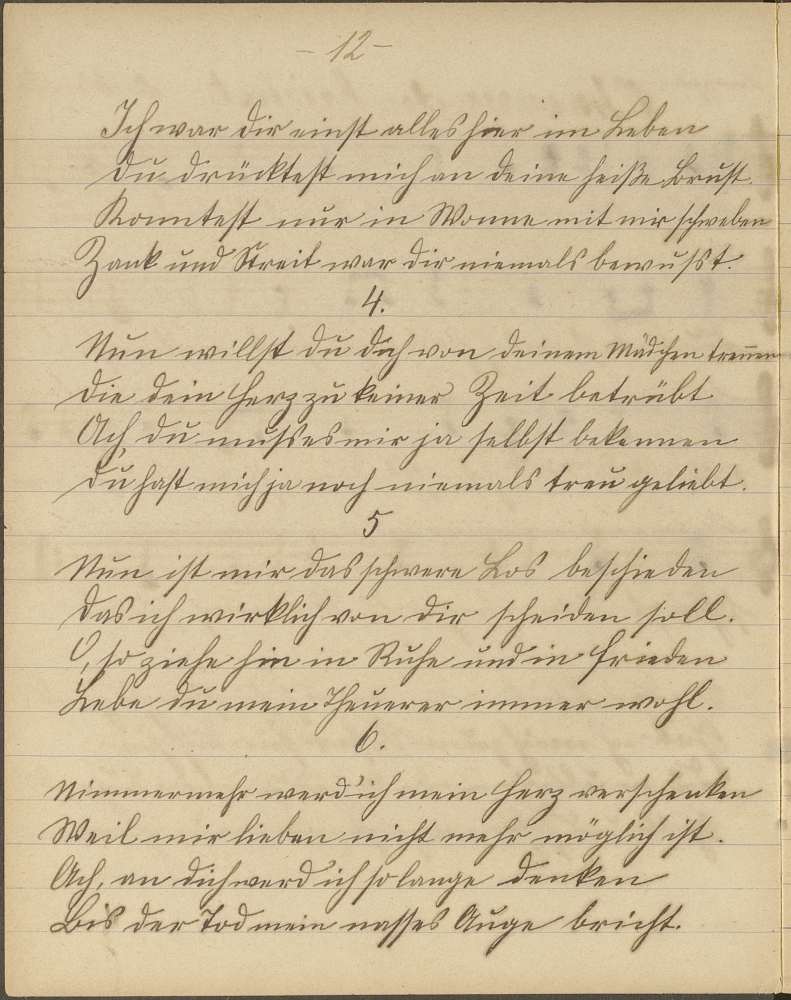 - 12 -
Ich war dir einst alles hier im Leben
Du drücktest mich an deine heiße Brust.
Konntest nur in Wonne mit mir schweben
Zank und Streit war dir niemals bewußt.
4.
Nun willst du dich von deinem Mädchen trennen
Die dein Herz zu keiner Zeit betrübt
Ach, du musses mir ja selbst bekennen
Du hast mich ja noch niemals treu geliebt.
5
Nun ist mir das schwere Los beschieden
Das ich wirklich von dir scheiden soll.
O, so ziehe hin in Ruhe und in Frieden
Lebe du mein Theuerer immer wohl.
6.
Nimmermehr werd' ich mein Herz verschenken
Weil mir lieben nicht mehr möglich ist.
Ach, an dich werd' ich so lange denken
Bis der Tod mein nasses Auge bricht.